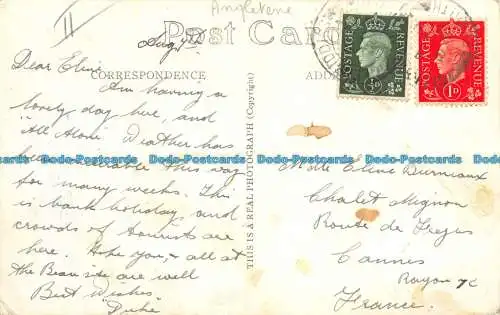 Angleterre
Post Card
Aug 1st
CORRESPONDENCE
ADD
Dear Eline
Am having a
lovely day here, and
"All Alone" Weather has
been miserable this way
for many weeks. This
is bank holiday, and
crowds of tourists are
here. Hope you & all at
the Beau site are well
Best Wishes
THIS IS A REAL PHOTOGRAPH (Copyright)
POSTAGE REVENUE
½D
POSTAGE REVENUE
1D
Melle Eline Burniaux
Chalet Mignon
Route de Frejus
Cannes
Rayon 7c
France.
Dado-Postcards Dado-Postcards Dado-Postcards Dado-Postcards Dado-Postcards